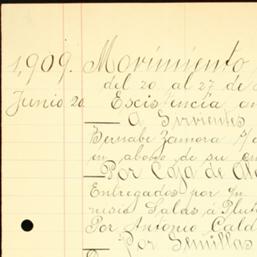 1,909. Movimiento
del 20 al 27 de
Junio 20 Existencia an
A Sirvientes
Bernabé Zamora
en abono de su cu
Por Caja de
Entregados por
nesio Salas á Plut
Por Antonio Cald
Por Semillas